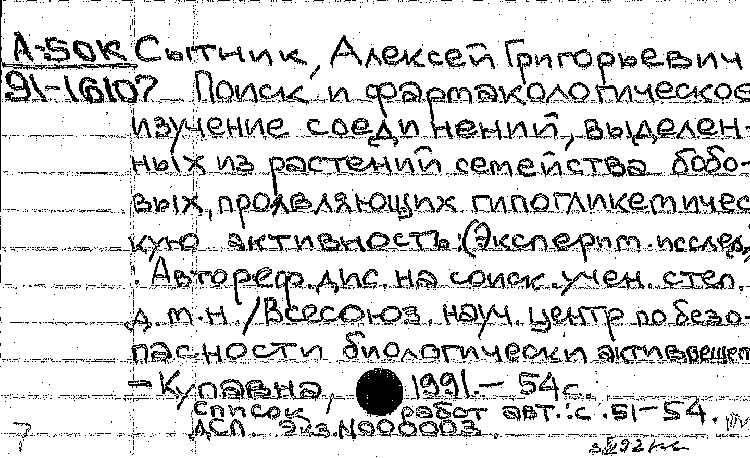 А-50К Сытник, Алексей Григорьевич
91-16107 Поиск и фармакологическое
изучение соединений, выделен-
ных из растений семейства бобо-
вых, проявляющих гипогликемичес
кую активность: (Эксперим. исслед.)
: Автореф. дис. на соиск. учен. степ.
д.м.н. / Всесоюз. науч. центр по безо-
пасности биологически актив веществ
– Купавна, 1991. – 54 с.
Список работ авт.: с. 51-54.
ДСП. Экз. N000003.